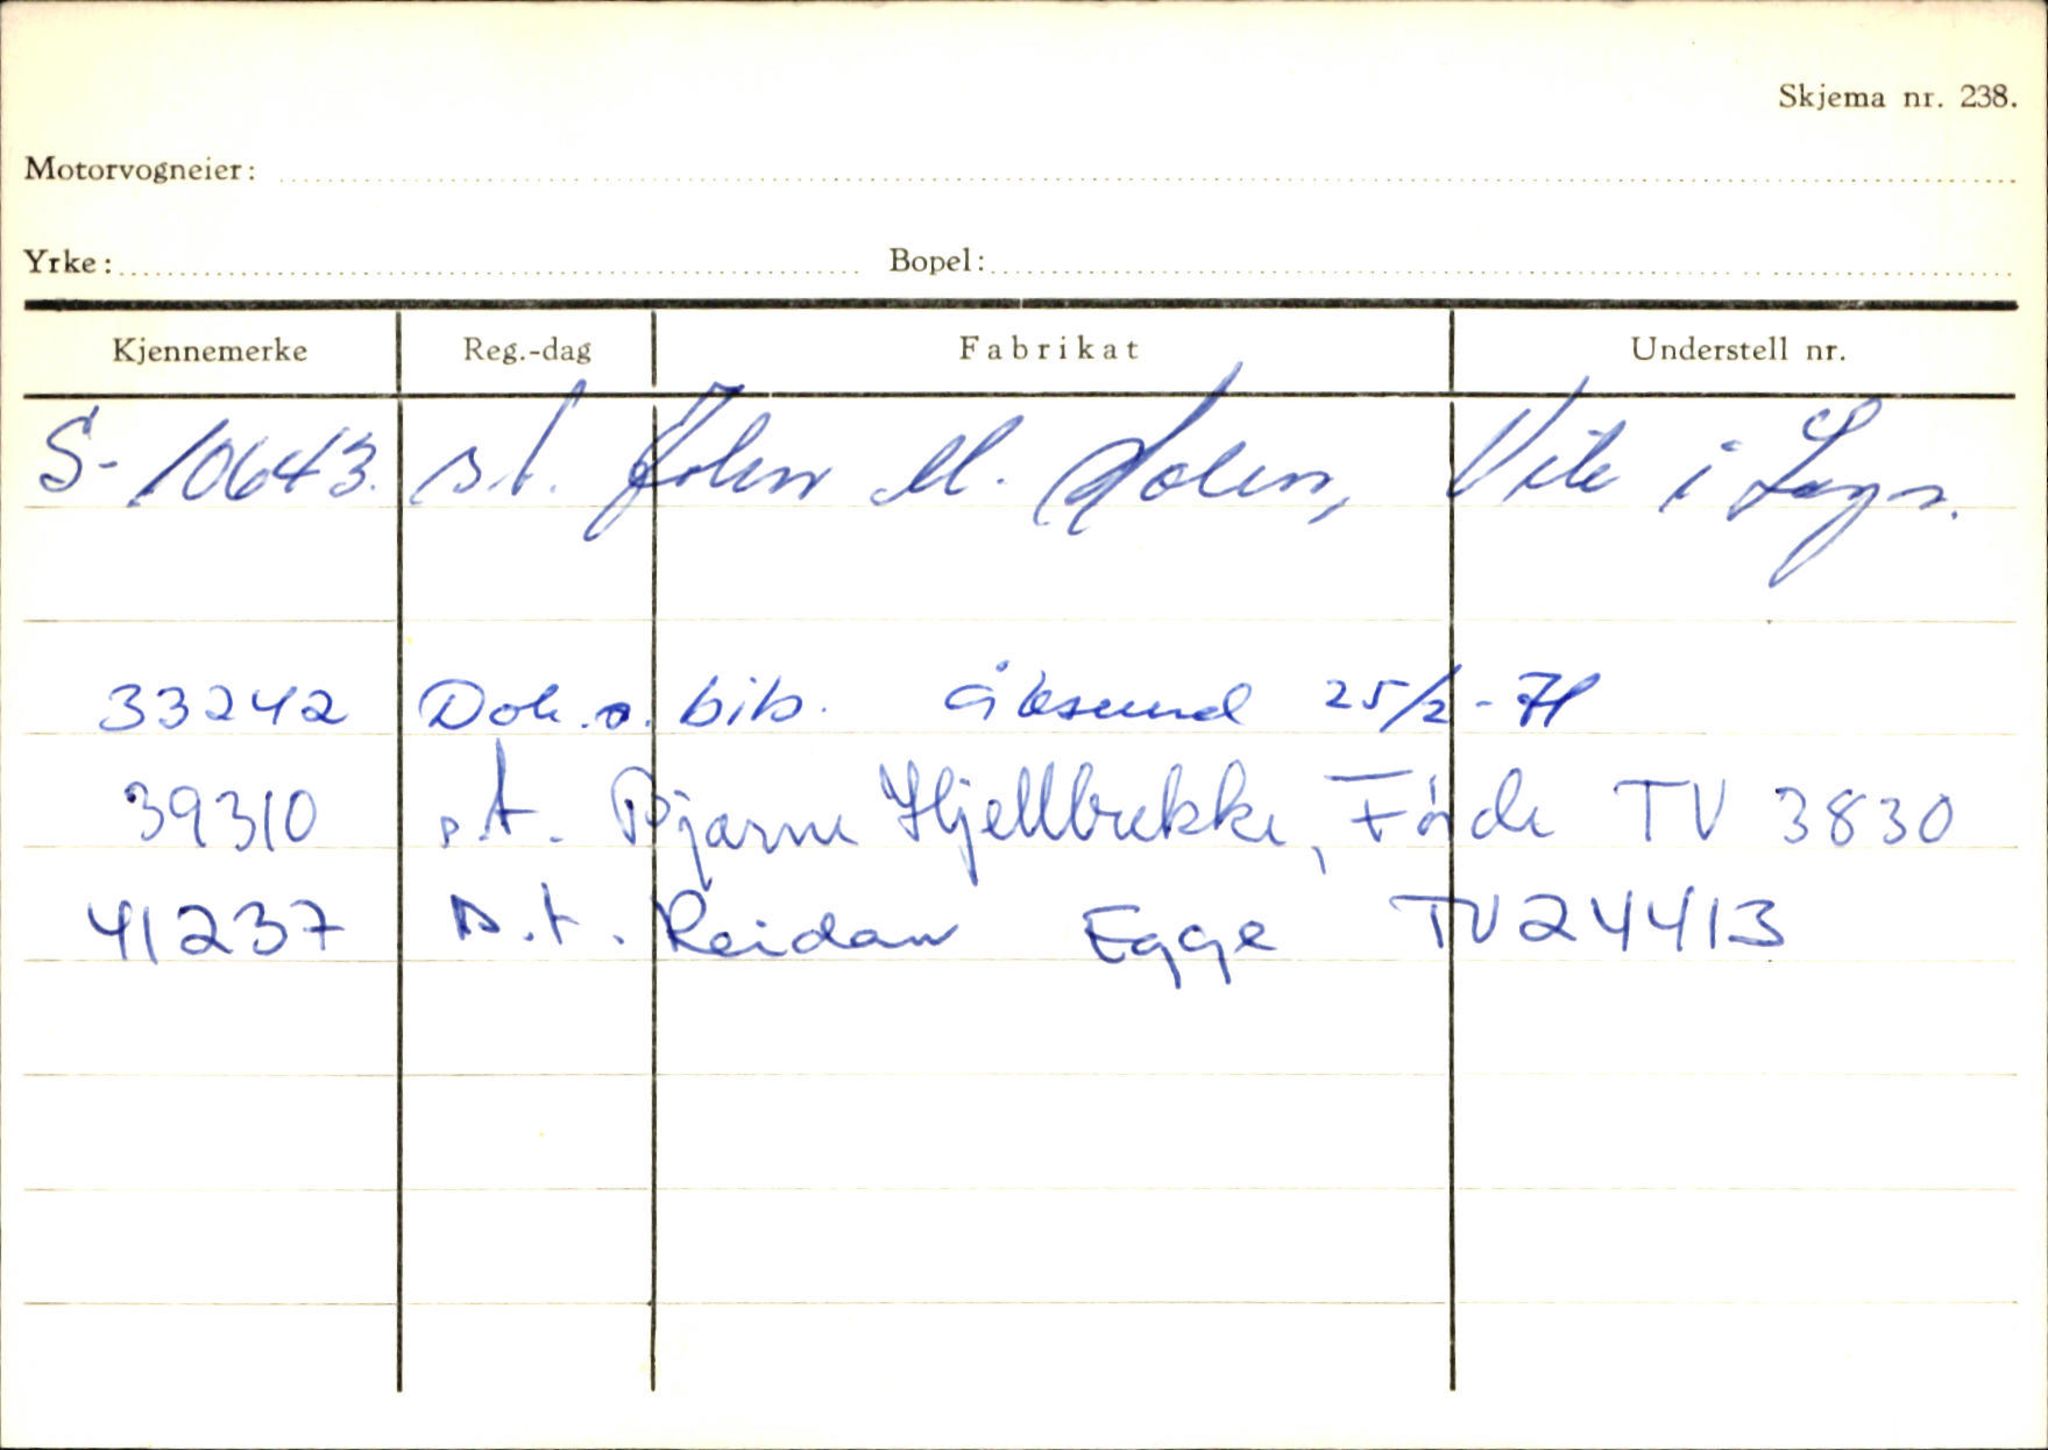 Skjema nr. 238.
Motorvogneier:
Yrke: Bopel:
Kjennemerke Reg.-dag Fabrikat Understell nr.
S-10643. s.t. John M. Holen, Vik i Sogn.
33242 Dok. s. bib. 25/2-71
39310 s.t. Bjarne Hjellbrekke, Førde TV 3830
41237 s.t. Reidar Egge TV24413